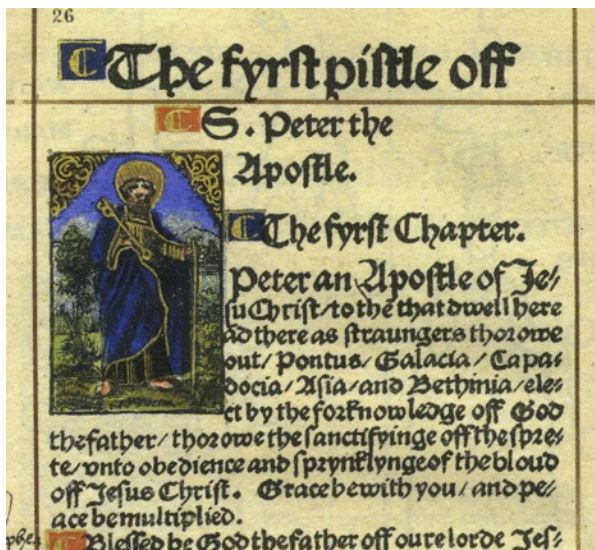 26
The fyrst pistle off
S. Peter the
Apostle.
The fyrst Chapter.
Peter an Apostle of Je/
su Christ/ to thẽ that dwell here
ãd there as straungers thorowe
out/ Pontus/ Galacia/ Capa⸗
docia/ Asia/ and Bethinia/ ele⸗
ct by the forknowledge off God
the father/ thorowe the sanctifyinge off the spre⸗
te/ vnto obedience and sprynklynge of the bloud
off Jesus Christ. Grace be with you/ and pe⸗
ace be multiplied.
Blessed be God the father off oure lorde Jes⸗